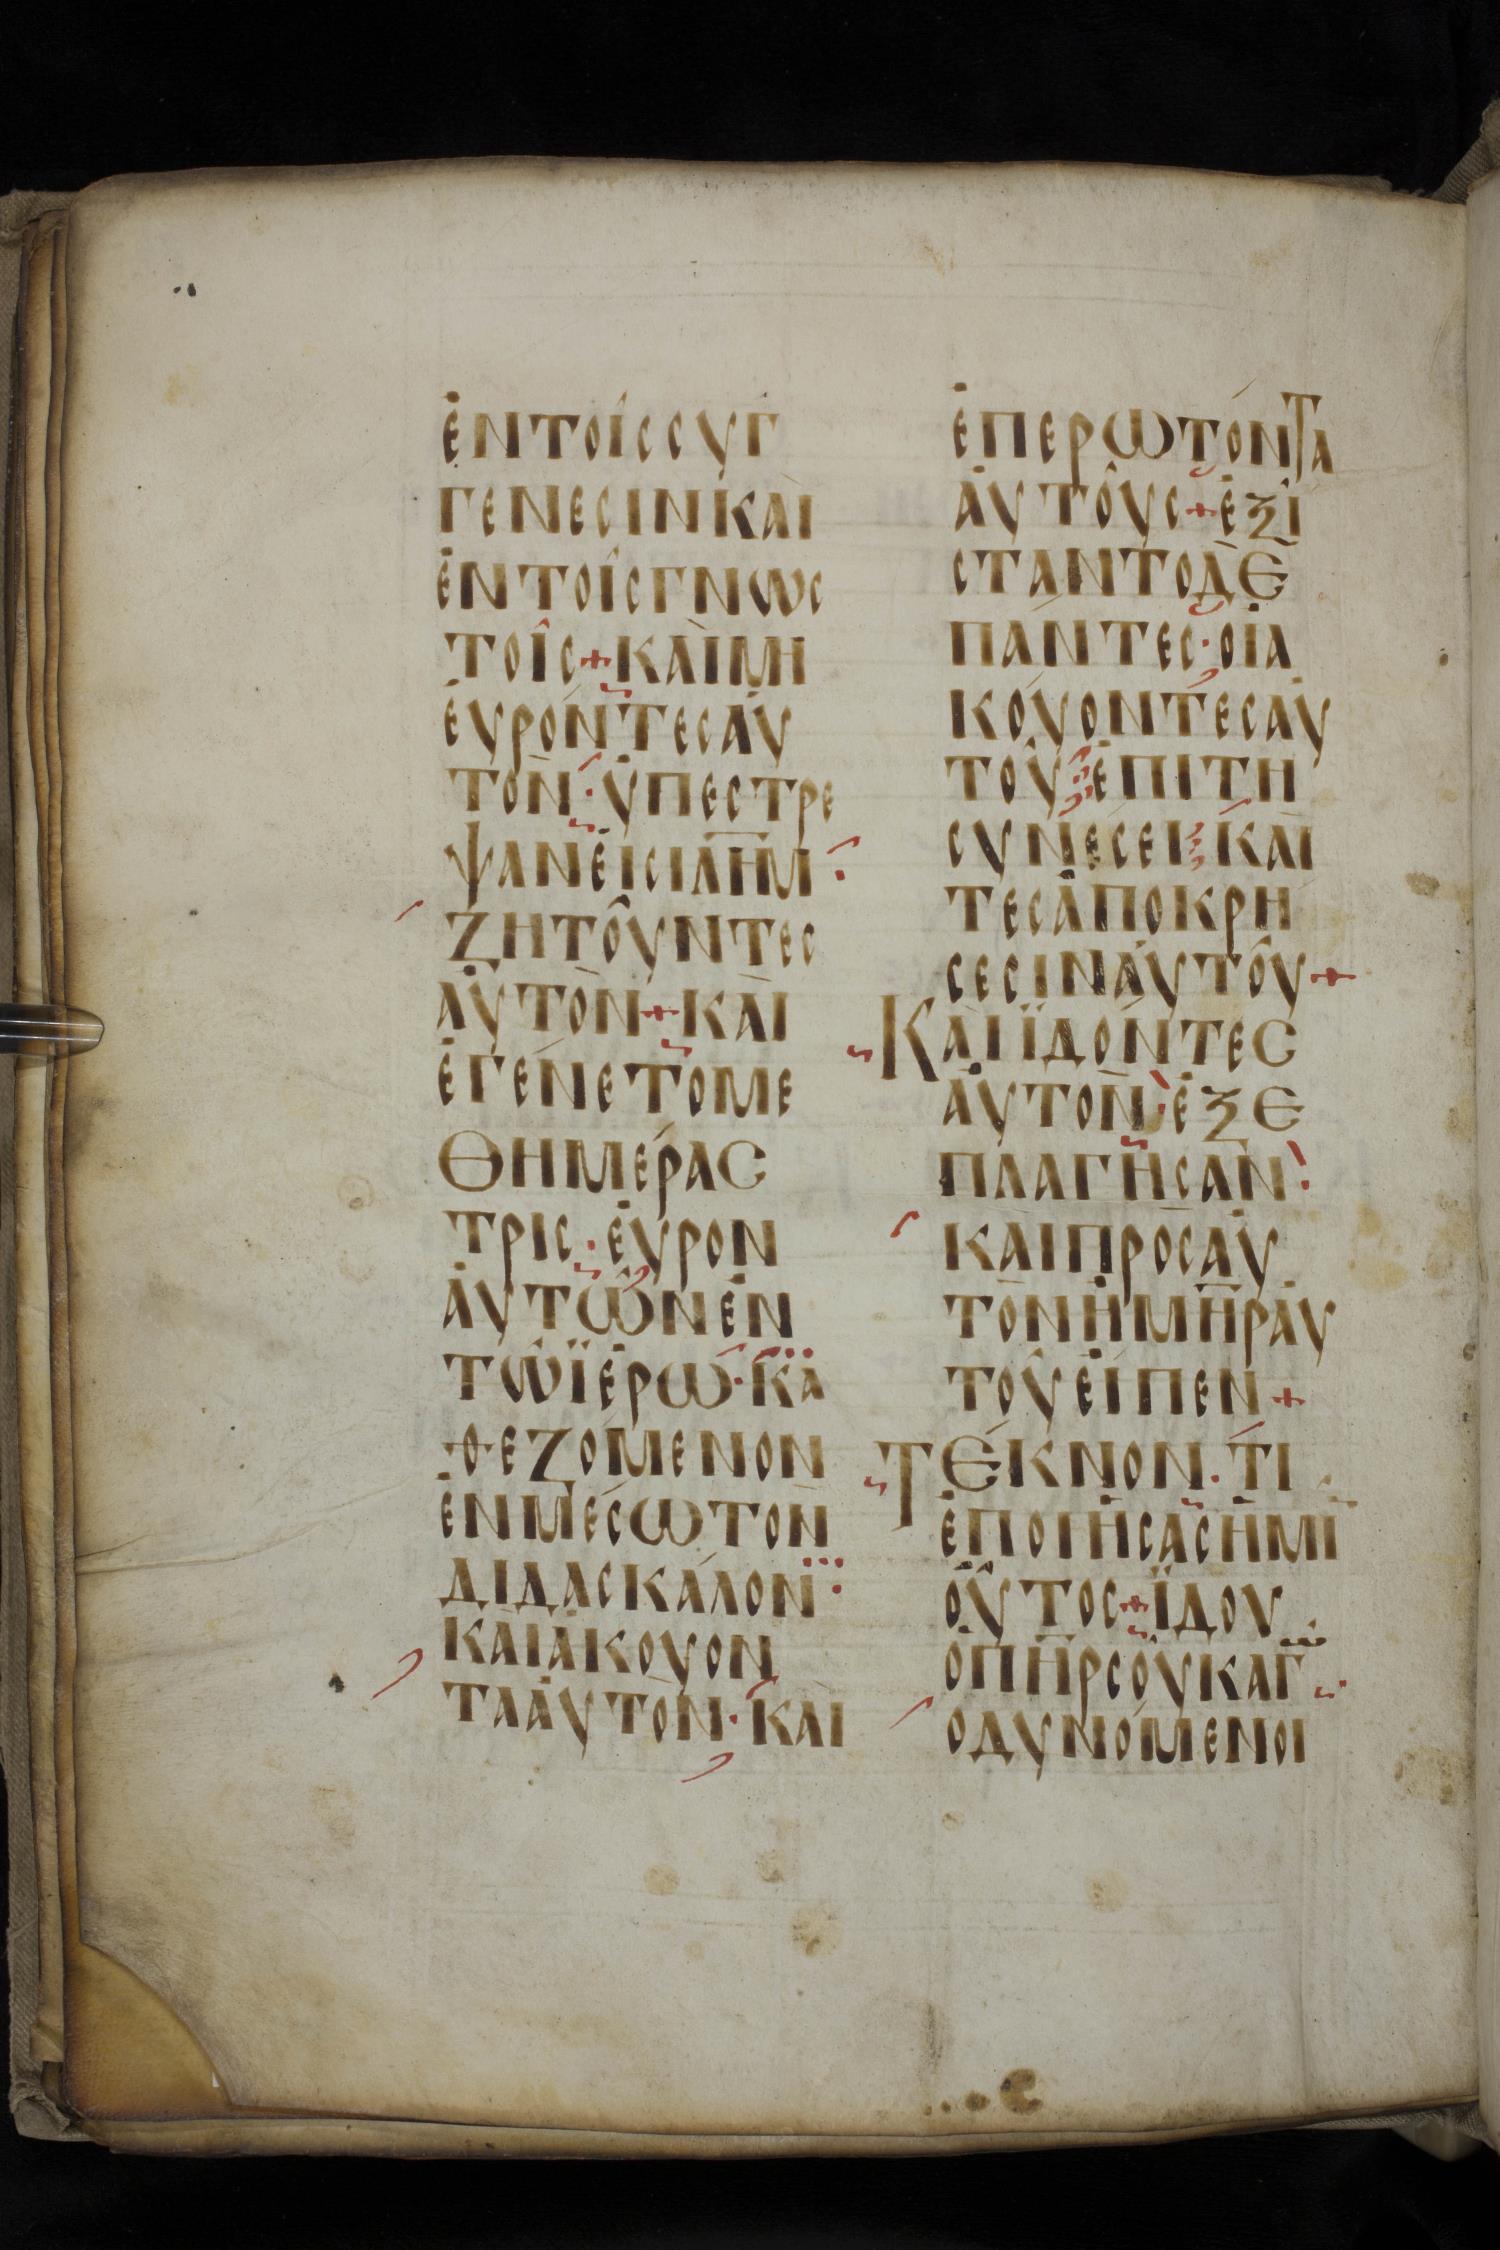 ἐν τοῖς συγ
γενεσιν καὶ
ἐν τοῖς γνως
τοῖς + καὶ μη
ἐυρόντες ἀυ
τὸν · ὑπεστρε
ψαν ἐις ιλημ ·
ζητοῦντες
ἀυτὸν + καὶ
ἐγένετο με
θ ημέρας
τρις · ἐυρον
ἀυτῶν ἐν
τῶ ϊἐρω · κα
θεζομενον
ἐν μέσω τὸν
διδασκάλον :
καὶ ἀκουον
τα ἀυτὸν · καὶ
ἐπερωτόντα
ἀυτοὺς + ἐξί
σταντο δὲ
πάντες · οἱ ἀ
κούοντες ἀυ
τοῦ ἐπι τη
συνέσει καὶ
τες ἀποκρη
σεσιν ἀυτοῦ +
Καὶ ϊδόντες
ἀυτὸν · ἐξε
πλαγησαν :
και προς ἀυ
τὸν ἡ μηρ ἀυ
τοῦ ἐίπεν +
Τέκνον · τί
ἐποιησας ἡμῖ
ὅυτος + ϊδου
ὁ πηρ σοῦ καγ
οδυνόμενοι